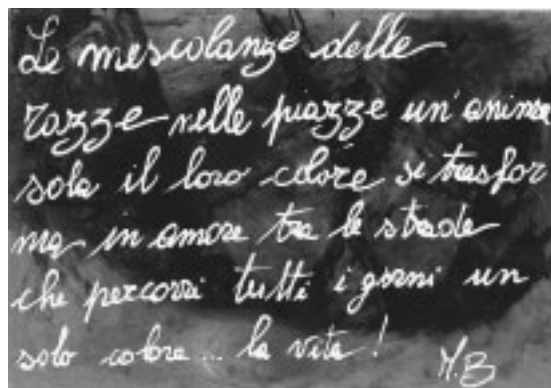 Le mescolanze delle
razze nelle piazze un'anima
sola il loro colore si trasfor
ma in amore tra le strade
che percorri tutti i giorni un
solo colore... la vita!
M.B